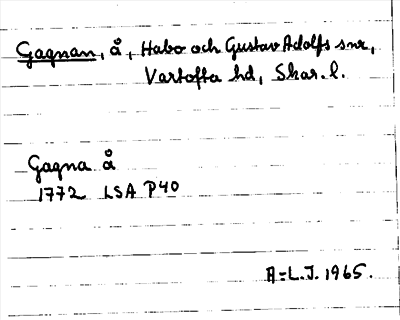 Gagnan, å, Habo och Gustav Adolfs snr,
Vartofta hd, Skar. l.
Gagna å
1772 LSA P40
A-L.J. 1965.